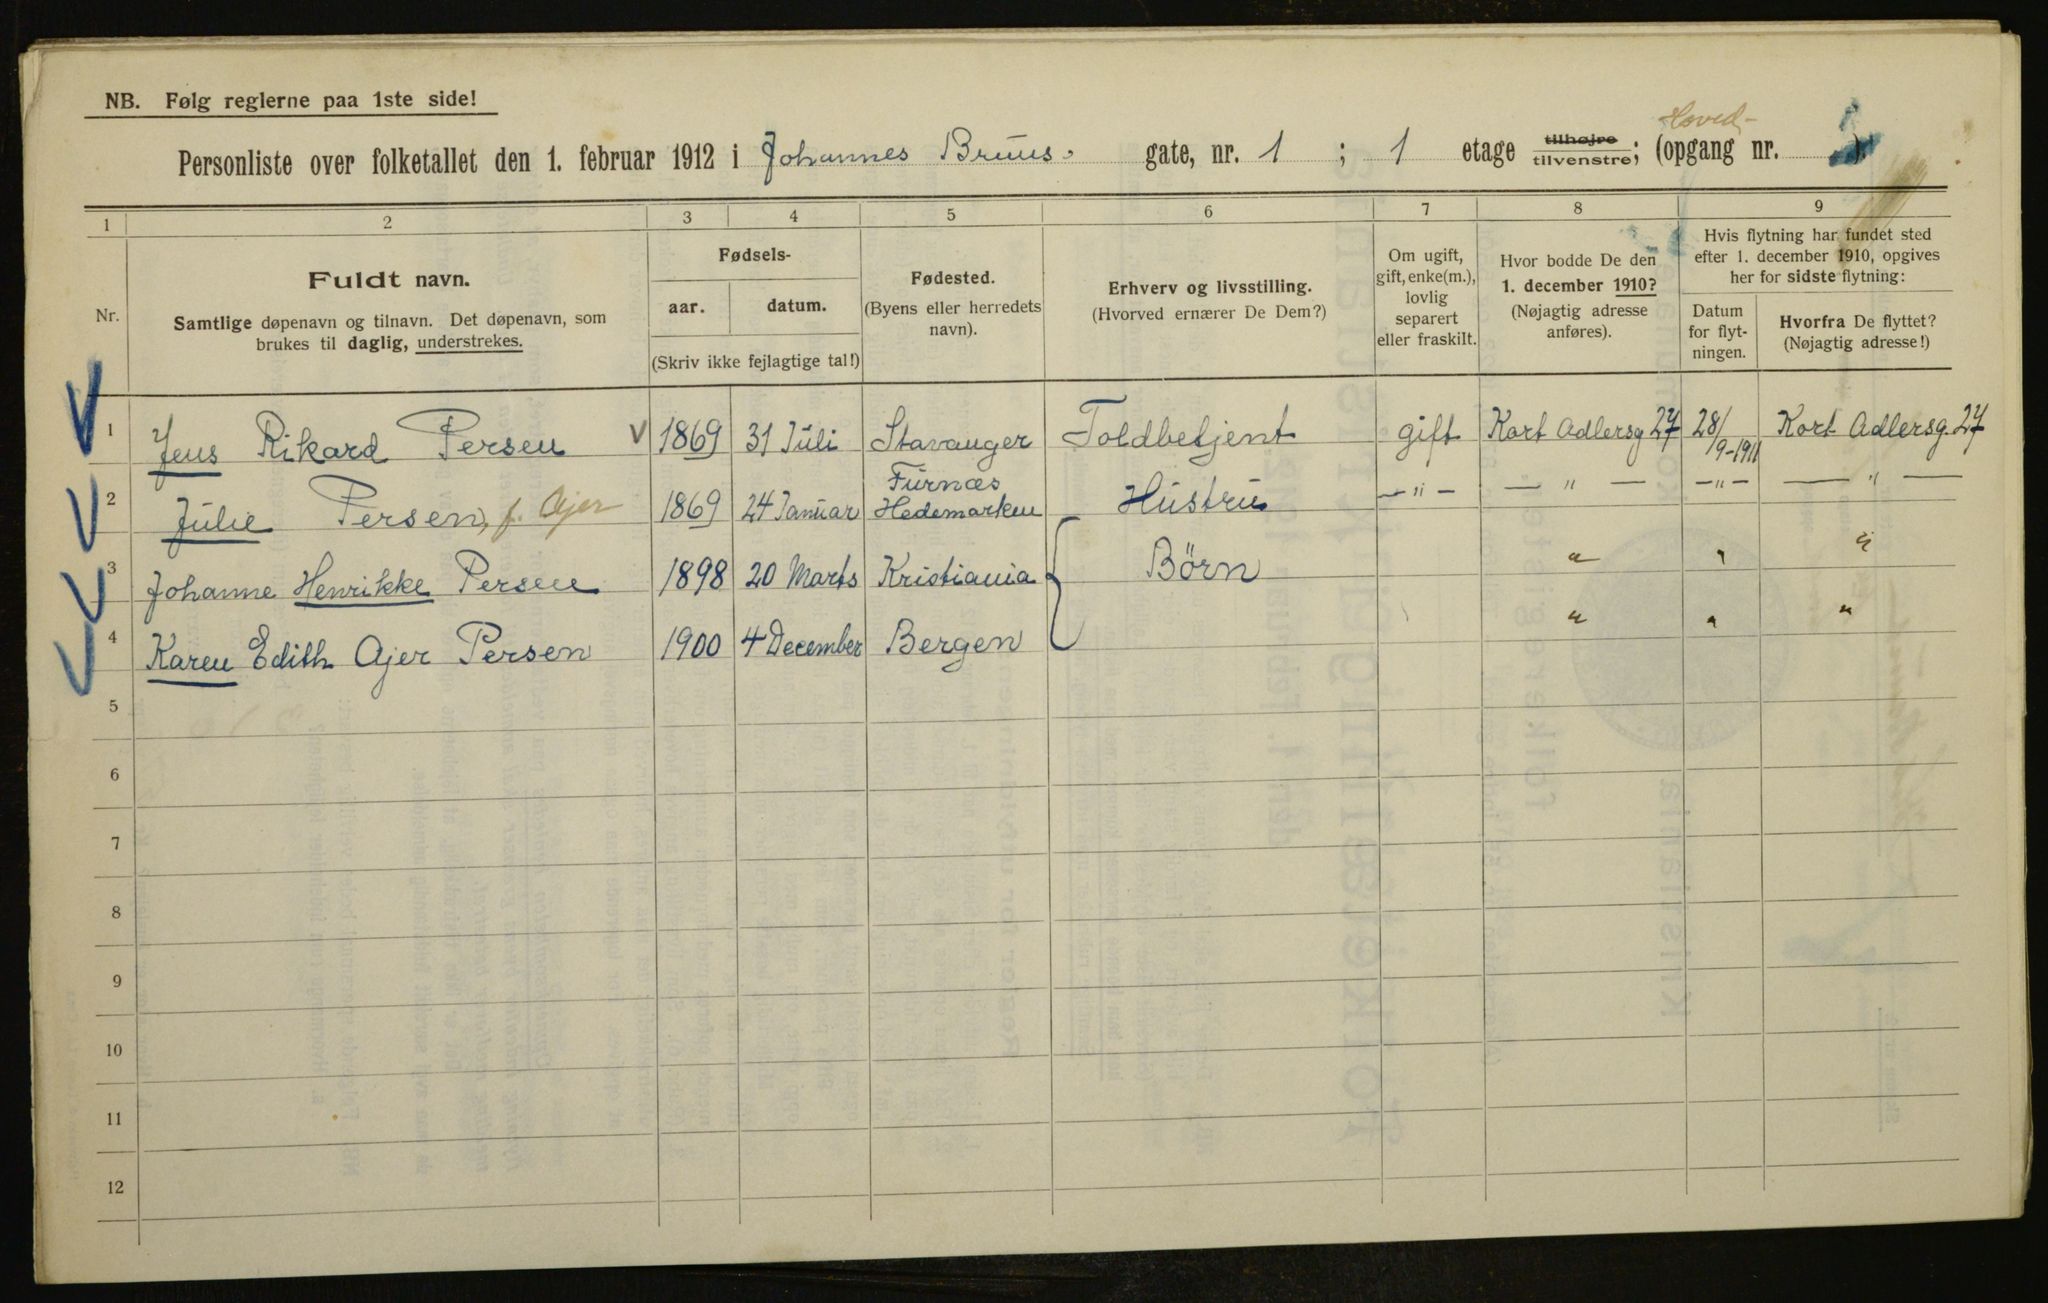 NB. Følg reglerne paa 1ste side!
Hoved-
Personliste over folketallet den 1. februar 1912 i Johannes Bruus gate, nr. 1 ; 1 etage tilhøjre tilvenstre; (opgang nr. )
1 2 3 4 5 6 7 8 9
Nr.
Fuldt navn.
Samtlige døpenavn og tilnavn. Det døpenavn, som
brukes til daglig, understrekes.
Fødsels-
aar. datum.
(Skriv ikke fejlagtige tal!)
Fødested.
(Byens eller herredets
navn).
Erhverv og livsstilling.
(Hvorved ernærer De Dem?)
Om ugift,
gift, enke(m.),
lovlig
separert
eller fraskilt.
Hvor bodde De den
1. december 1910?
(Nøjagtig adresse
anføres).
Hvis flytning har fundet sted
efter 1. december 1910, opgives
her for sidste flytning:
Datum
for flyt-
ningen.
Hvorfra De flyttet?
(Nøjagtig adresse!)
1 Jens Rikard Persen V 1869 31 Juli Stavanger Toldbetjent gift Kort Adlersg 27 28/9-1911 Kort Adlersg. 27
2 Julie Persen, f. Ajer 1869 24 Januar Furnæs Hedemarken Hustru —"— — " — —"— — " —
3 Johanne Henrikke Persen 1898 20 Marts Kristiania Børn " " "
4 Karen Edith Ajer Persen 1900 4 December Bergen " " "
5
6
7
8
9
10
11
12